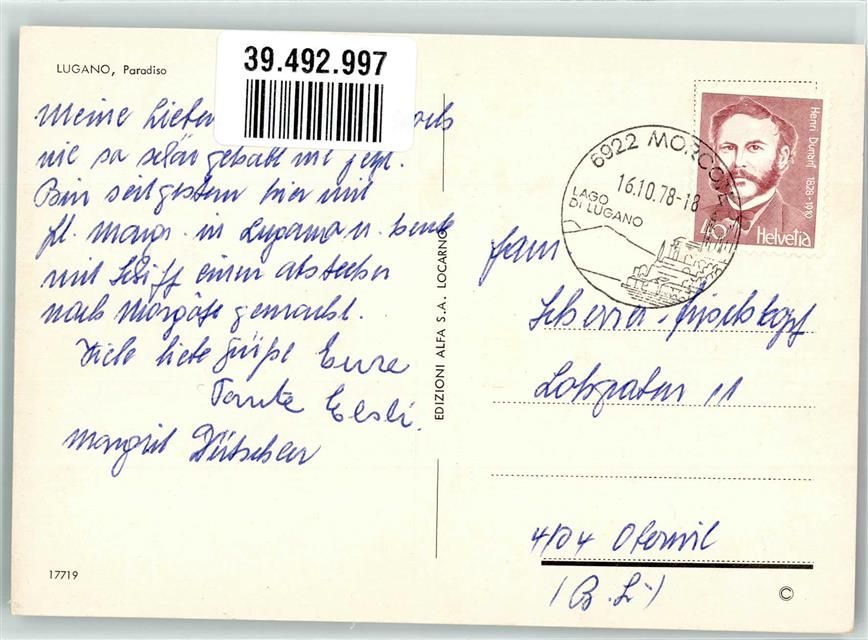 LUGANO, Paradiso
39.492.997
Meine Lieben
nie so schön gehabt wie jetzt.
Bin seit gestern hier mit
frl. Margr. in Lugano u. heute
mit Schiff einen abstecher
nach Morgote gemacht.
Viele liebe Grüsse Eure
Tante Elsli.
Margrit
17719
EDIZIONI ALFA S.A. LOCARNO
6922 MORCOTE
16.10.78-18
LAGO
DI LUGANO
Henri Dunant 1828-1910
Helvetia
Fam
Scherrer-
11
4104 Oberwil
(B.L.)
©